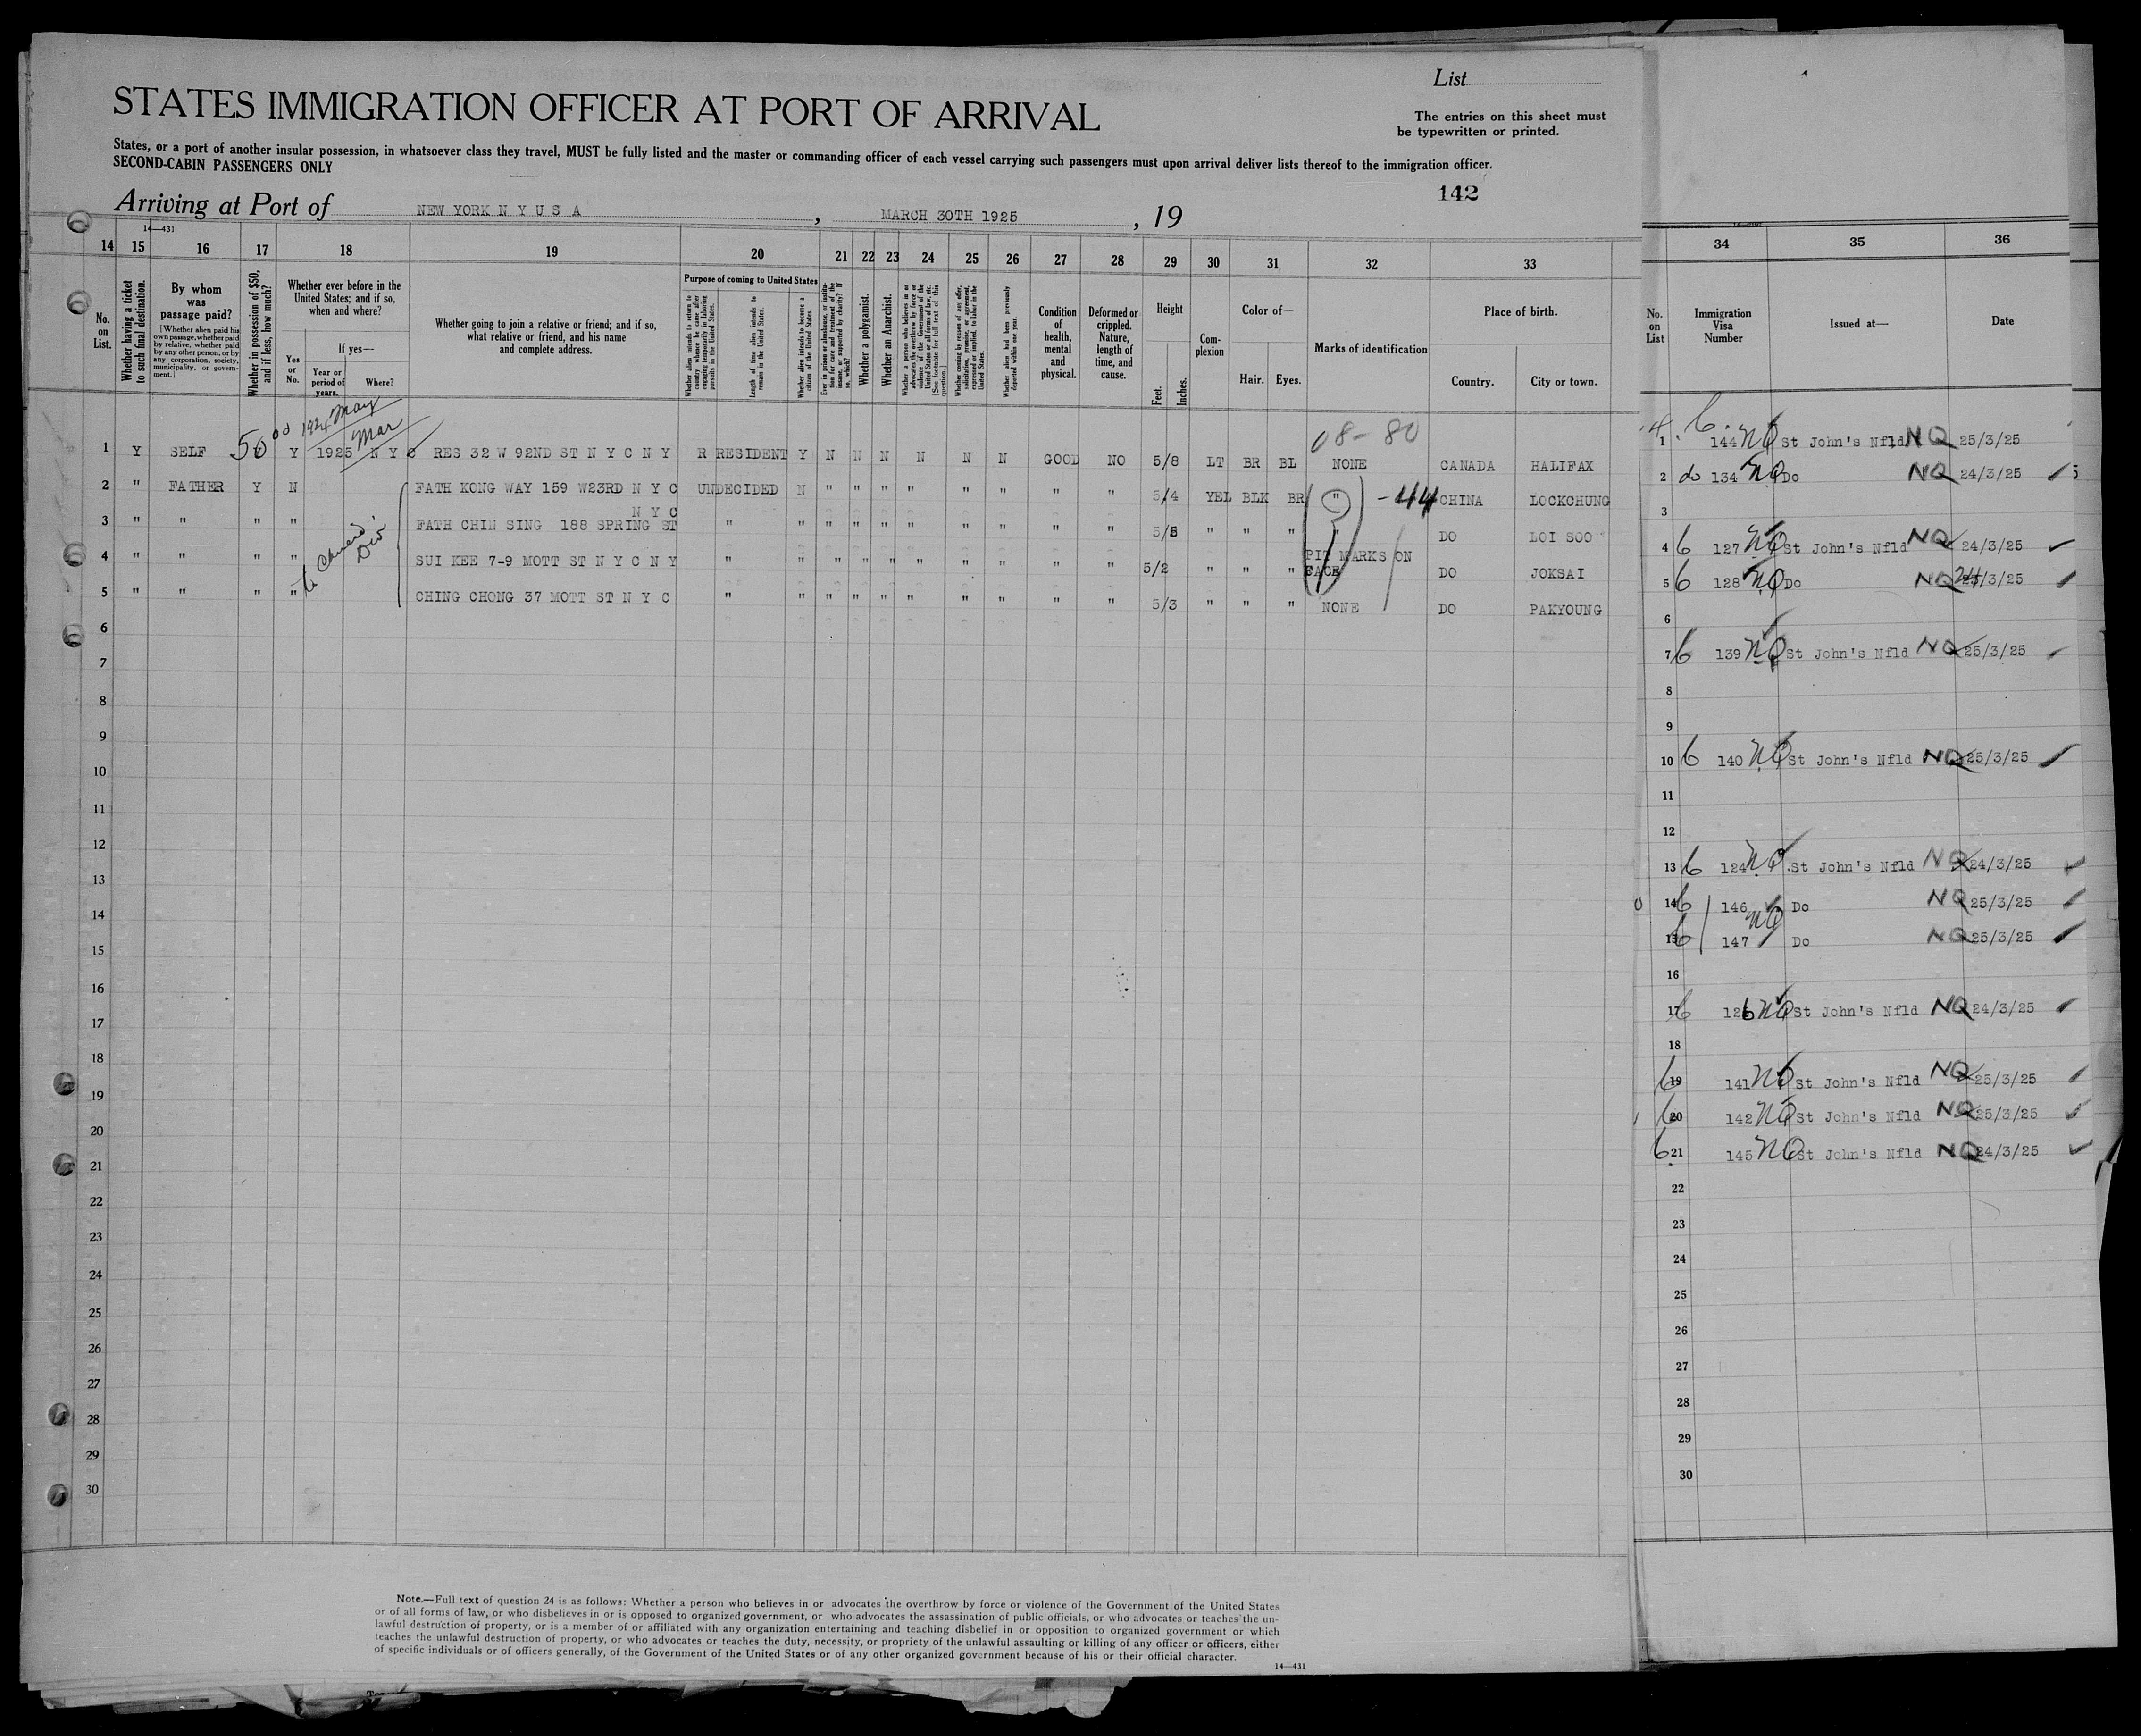 List
STATES IMMIGRATION OFFICER AT PORT OF ARRIVAL
The entries on this sheet must
be typewritten or printed.
States, or a port of another insular possession, in whatsoever class they travel, MUST be fully listed and the master or commanding officer of each vessel carrying such passengers must upon arrival deliver lists thereof to the immigration officer.
SECOND-CABIN PASSENGERS ONLY
142
Arriving at Port of NEW YORK N Y U S A , MARCH 30TH 1925 , 19
14—431
14 15 16 17 18 19 20 21 22 23 24 25 26 27 28 29 30 31 32 33
No. on List.
Whether having a ticket to such final destination.
By whom was passage paid?
[Whether alien paid his own passage, whether paid by relative, whether paid by any other person, or by any corporation, society, municipality, or government.]
Whether in possession of $50, and if less, how much?
Whether ever before in the United States; and if so, when and where?
Yes or No.
If yes—
Year or period of years.
Where?
Whether going to join a relative or friend; and if so, what relative or friend, and his name and complete address.
Purpose of coming to United States
Whether alien intends to return to country whence he came after engaging temporarily in laboring pursuits in the United States.
Length of time alien intends to remain in the United States.
Whether alien intends to become a citizen of the United States.
Ever in prison or almshouse, or institution for care and treatment of the insane, or supported by charity? If so, which?
Whether a polygamist.
Whether an Anarchist.
Whether a person who believes in or advocates the overthrow by force or violence of the Government of the United States or all forms of law, etc. [See footnote for full text of this question.]
Whether coming by reason of any offer, solicitation, promise, or agreement, expressed or implied, to labor in the United States.
Whether alien had been previously deported within one year.
Condition of health, mental and physical.
Deformed or crippled. Nature, length of time, and cause.
Height
Feet. Inches.
Complexion
Color of—
Hair. Eyes.
Marks of identification
Place of birth.
Country. City or town.
1924 May
Mar
08-80
1 Y SELF 50 00 Y 1925 N Y C RES 32 W 92ND ST N Y C N Y R RESIDENT Y N N N N N N GOOD NO 5/8 LT BR BL NONE CANADA HALIFAX
2 " FATHER Y N FATH KONG WAY 159 W23RD N Y C UNDECIDED N " " " " " " " " 5/4 YEL BLK BR " -44 CHINA LOCKCHUNG
N Y C
3 " " " " FATH CHIN SING 188 SPRING ST " " " " " " " " " " 5/5 " " " " DO LOI SOO
4 " " " " SUI KEE 7-9 MOTT ST N Y C N Y " " " " " " " " " " 5/2 " " " PIT MARKS ON FACE DO JOKSAI
5 " " " " CHING CHONG 37 MOTT ST N Y C " " " " " " " " " " 5/3 " " " NONE DO PAKYOUNG
6
7
8
9
10
11
12
13
14
15
16
17
18
19
20
21
22
23
24
25
26
27
28
29
30
Note.—Full text of question 24 is as follows: Whether a person who believes in or advocates the overthrow by force or violence of the Government of the United States
or of all forms of law, or who disbelieves in or is opposed to organized government, or who advocates the assassination of public officials, or who advocates or teaches the un-
lawful destruction of property, or is a member of or affiliated with any organization entertaining and teaching disbelief in or opposition to organized government or which
teaches the unlawful destruction of property, or who advocates or teaches the duty, necessity, or propriety of the unlawful assaulting or killing of any officer or officers, either
of specific individuals or of officers generally, of the Government of the United States or of any other organized government because of his or their official character.
14—431
34 35 36
No. on List
Immigration Visa Number
Issued at—
Date
1 6 144 NQ St John's Nfld NQ 25/3/25
2 134 NQ Do NQ 24/3/25
3
4 6 127 NQ St John's Nfld NQ 24/3/25
5 6 128 NQ Do NQ 24/3/25
6
7 6 139 NQ St John's Nfld NQ 25/3/25
8
9
10 6 140 NQ St John's Nfld NQ 25/3/25
11
12
13 6 124 NQ St John's Nfld NQ 24/3/25
14 6 146 Do NQ 25/3/25
NQ
15 6 147 Do NQ 25/3/25
16
17 6 126 NQ St John's Nfld NQ 24/3/25
18
19 6 141 NQ St John's Nfld NQ 25/3/25
20 6 142 NQ St John's Nfld NQ 25/3/25
21 6 145 NQ St John's Nfld NQ 24/3/25
22
23
24
25
26
27
28
29
30